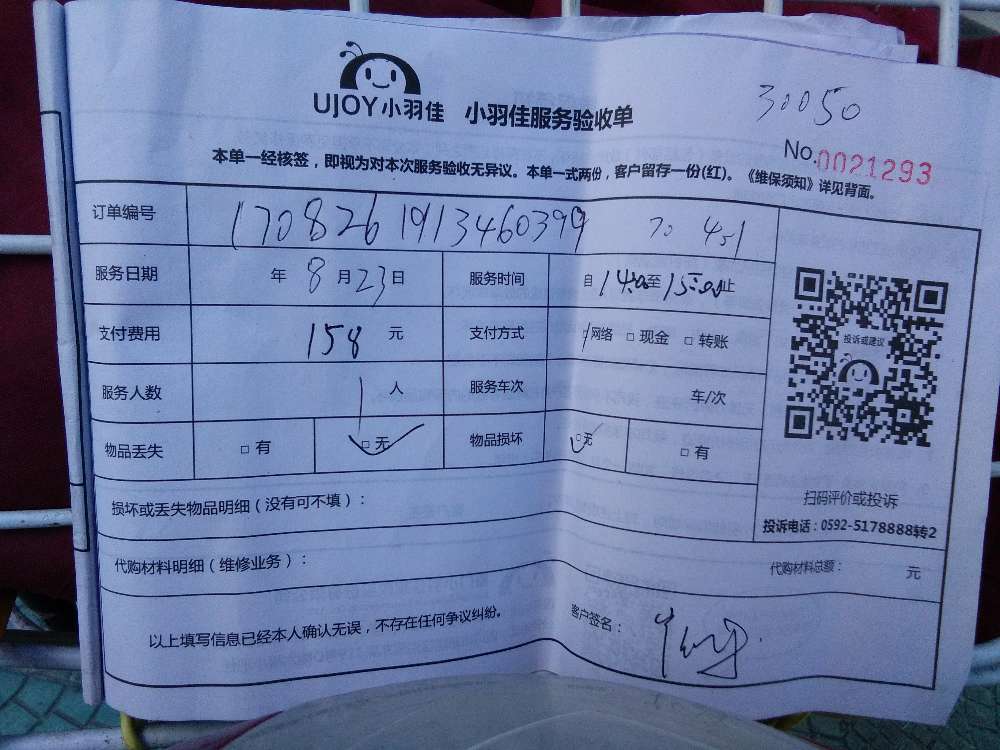 30050
UJOY小羽佳 小羽佳服务验收单
No.0021293
本单一经核签，即视为对本次服务验收无异议。本单一式两份，客户留存一份(红)。《维保须知》详见背面。
订单编号 1708261913460399 70 451
服务日期 年 8 月 23 日 服务时间 自 14:00 至 15:00 止
支付费用 158 元 支付方式 网络 □ 现金 □ 转账
服务人数 1 人 服务车次 车/次
物品丢失 □ 有 □ 无 物品损坏 □ 无 □ 有
投诉或建议
扫码评价或投诉
投诉电话：0592-5178888转2
损坏或丢失物品明细（没有可不填）：
代购材料明细（维修业务）： 代购材料总额： 元
以上填写信息已经本人确认无误，不存在任何争议纠纷。 客户签名：